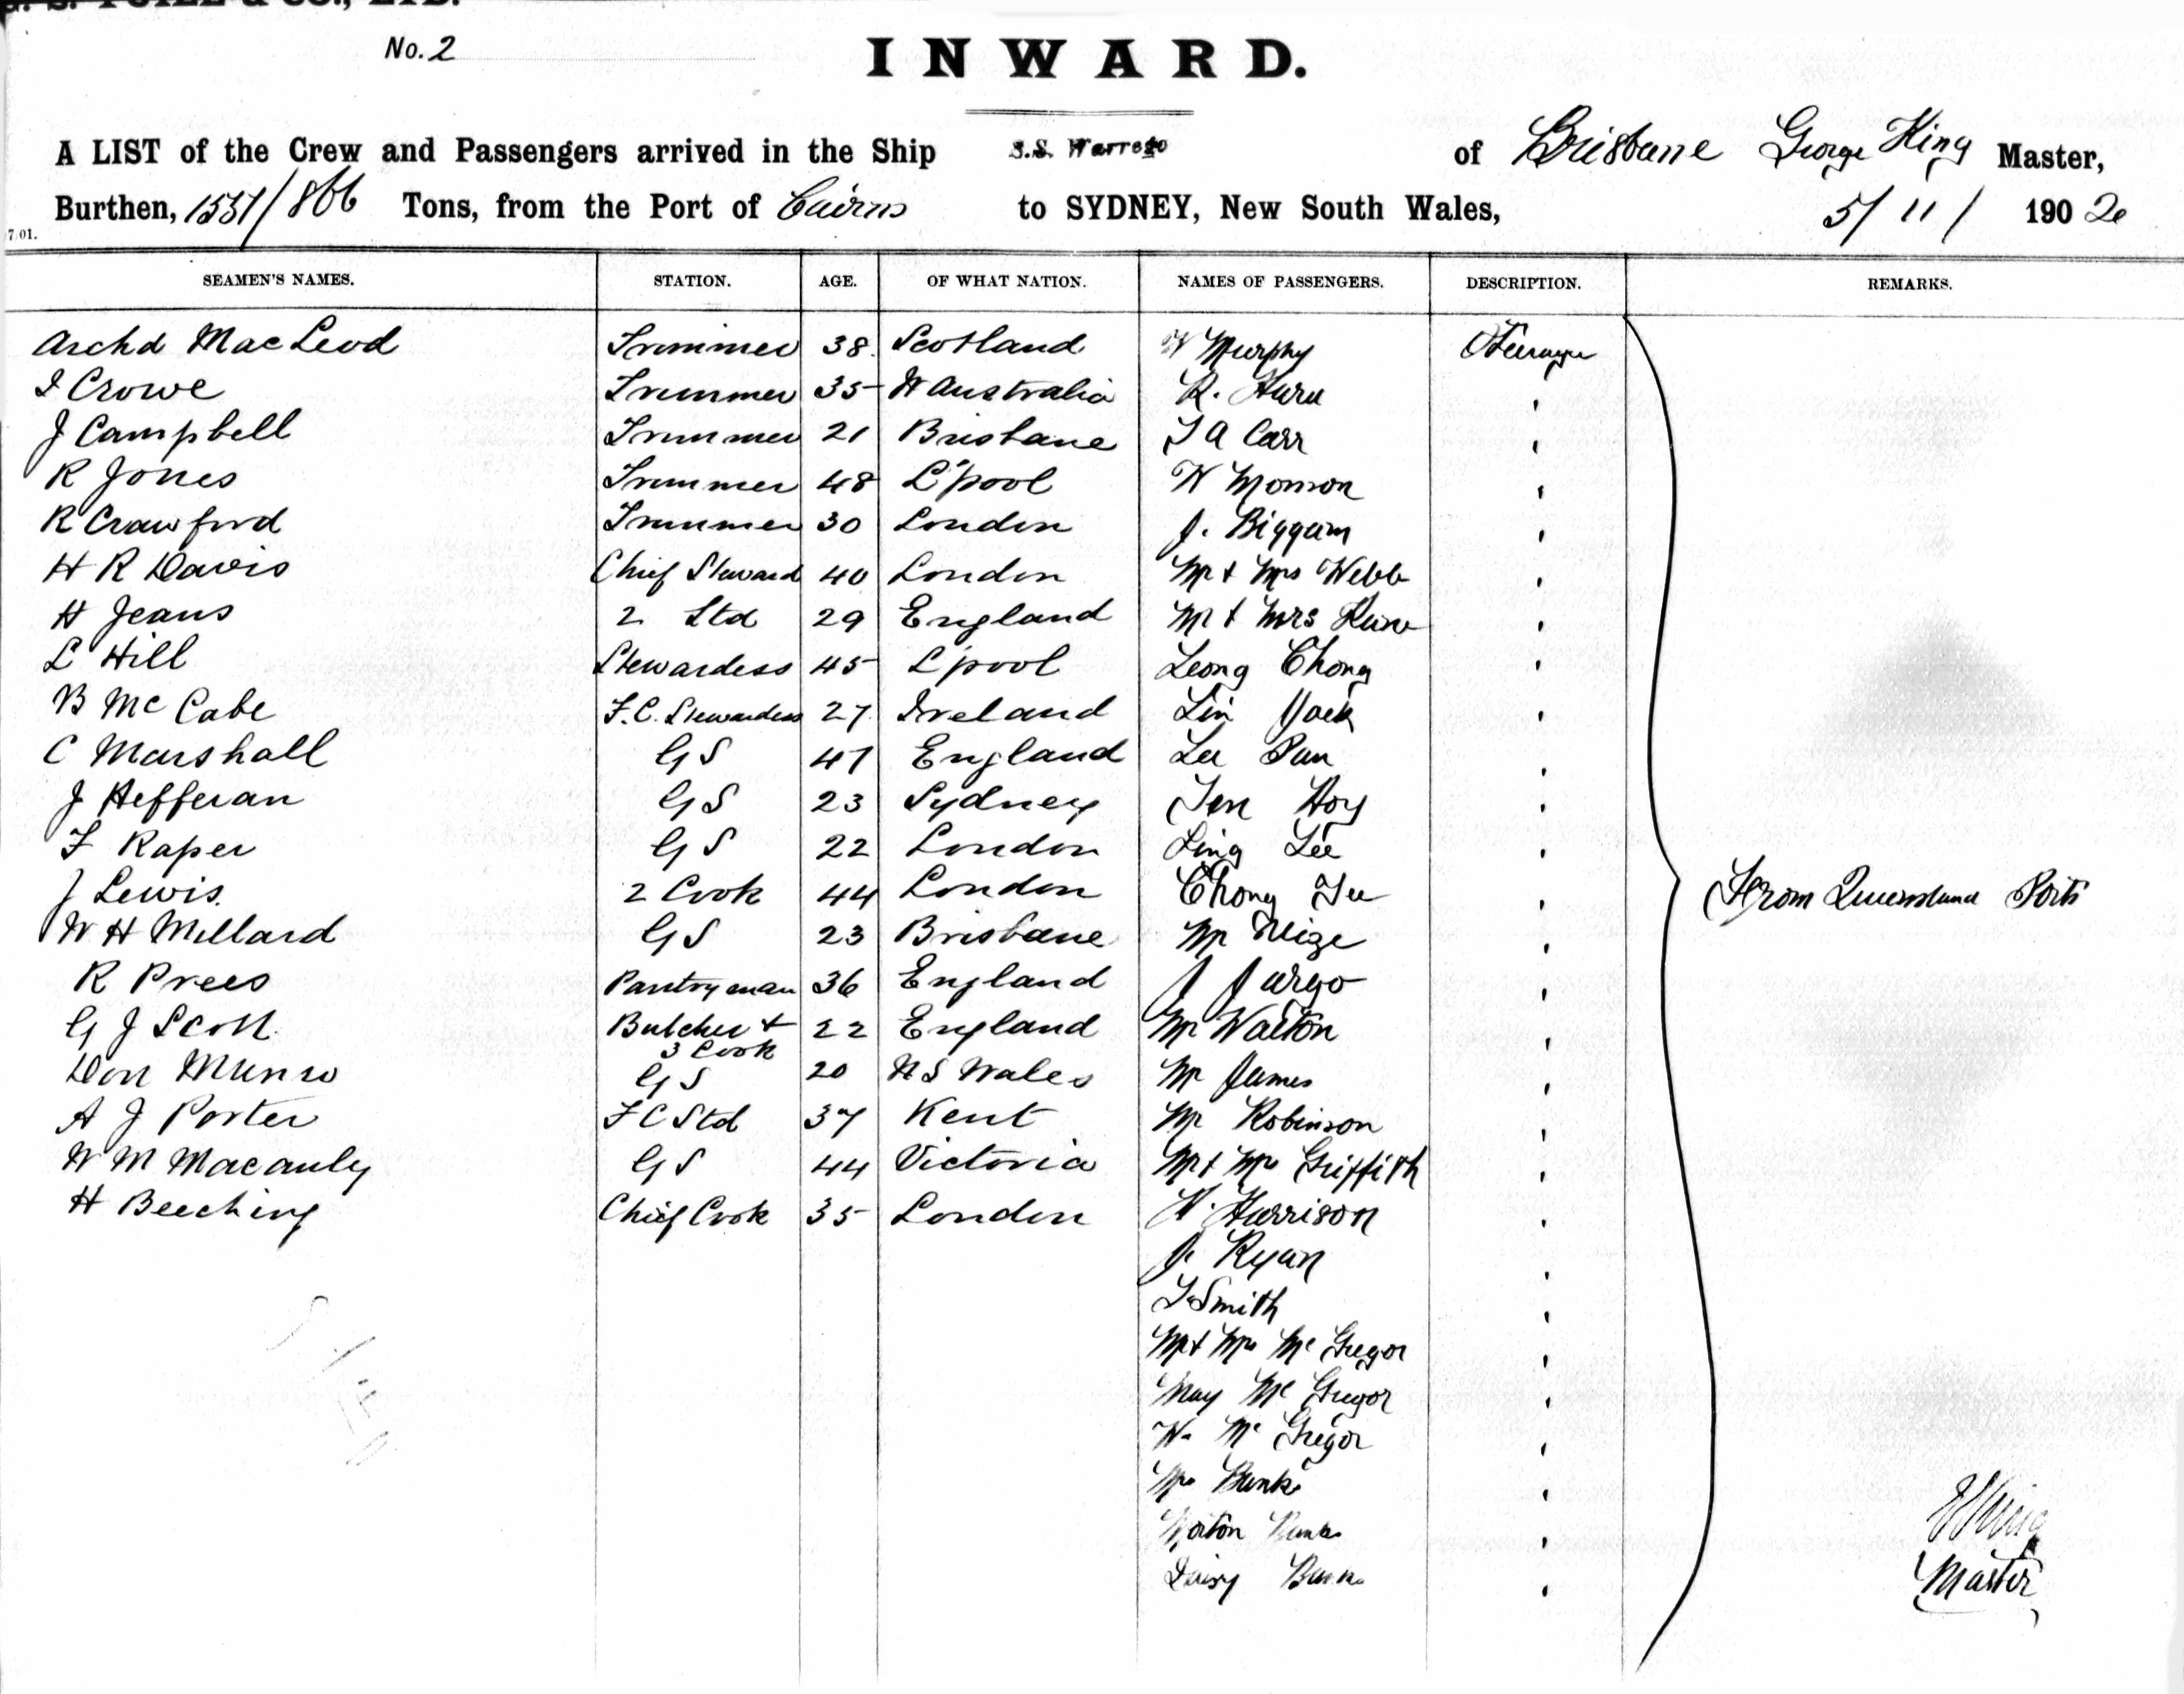 & CO., LTD.
No. 2
INWARD.
A LIST of the Crew and Passengers arrived in the Ship S.S. Warrego of Brisbane George King Master,
Burthen, 1551/866 Tons, from the Port of Cairns to SYDNEY, New South Wales, 5/11/1902
7/01.
SEAMEN'S NAMES. STATION. AGE. OF WHAT NATION. NAMES OF PASSENGERS. DESCRIPTION. REMARKS.
Archd MacLeod Trimmer 38 Scotland W Murphy Steerage
I Crowe Trimmer 35 W Australia R.
J Campbell Trimmer 21 Brisbane T A Carr
R Jones Trimmer 48 L'pool W
R Crawford Trimmer 30 London J. Biggam
H R Davis Chief Steward 40 London Mr & Mrs Webb
H Jeans 2 Std 29 England Mr & Mrs
L Hill Stewardess 45 L'pool Leong Chong
B McCabe F.C. Stewardess 27 Ireland Lin
C Marshall GS 47 England Lee
J Hefferan GS 23 Sydney Hoy
F Raper GS 22 London Ling Lee
J Lewis. 2 Cook 44 London Chong
From Queensland Ports
W H Millard GS 23 Brisbane Mr
R Prees Pantryman 36 England J
G J Scott Butcher & 22 England Mr Walton
3 Cook
Don Munro GS 20 N S Wales Mr James
A J Porter F C Std 37 Kent Mr Robinson
W M Macauly GS 44 Victoria Mr & Mrs Griffith
H Beeching Chief Cook 35 London W. Harrison
J. Ryan
T. Smith
Mr & Mrs McGregor
May McGregor
W. McGregor
Mrs Banks
Banks
Daisy Banks
King
Master